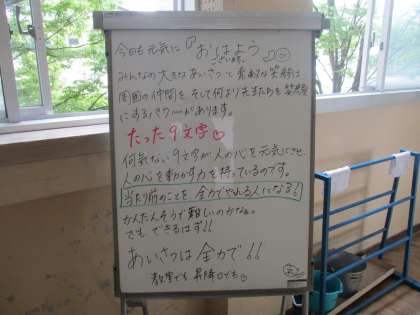 今日も元気に『おはよう
ございます』♪
みんなの大きなあいさつと素敵な笑顔は
周囲の仲間を、そして何より先生たちを笑顔
にするパワーがあります。
たった9文字♡
何気ない9文字が人の心を元気にさせ、
人の心を動かす力を持っているのです。
当たり前のことを、全力でやれる人になる!!
かんたんそうで難しいのかなぁ。
でも、できるはず!!
あいさつは全力で!!
教室でも昇降口でも。